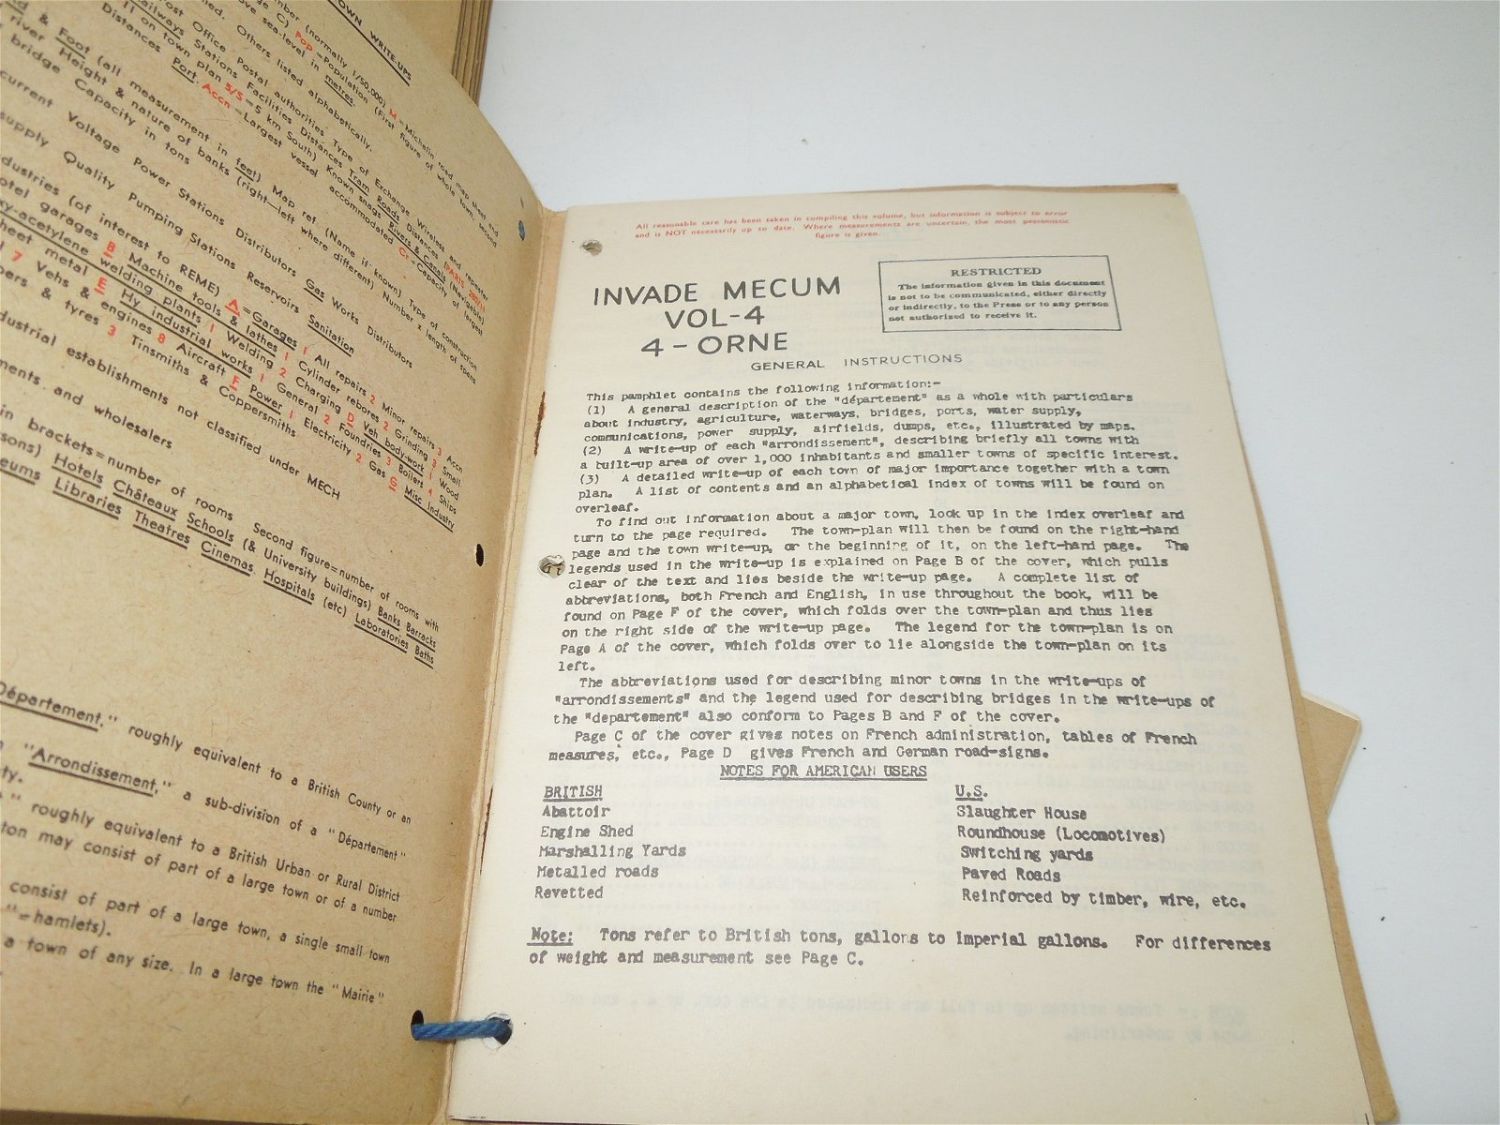 TOWN WRITE-UPS
(normally 1/50,000) M =Michelin road map sheet and
C) Pop =Population (First figure of whole town, second
sea-level in metres.
Others listed alphabetically.
Post Office Postal authorities Type of Exchange Wireless and repeater
Railways Stations Facilities Distances Tram Roads Distances
11 on town plan 5/S =5 km South) Known snags Rivers & Canals (Navigable)
Distances Port. Accn =Largest vessel accommodated Cr =Capacity of largest
& Foot (all measurement in feet) Map ref. (Name if known) Type of construction
river Height & nature of banks (right—left where different) Number x length of spans
bridge Capacity in tons
current Voltage Power Stations Distributors Gas Works Distributors
supply Quality Pumping Stations Reservoirs Sanitation
(of interest to REME) A =Garages 1 All repairs 2 Minor repairs 3 Accn
garages B Machine tools & lathes 1 Cylinder rebores 2 Grinding 3 Small
welding plants 1 Welding 2 Charging D Veh body-work 1 Wood
sheet metal E Hy industrial works 1 General 2 Foundries 3 Boilers 4 Ships
7 Vehs & engines 8 Aircraft F Power 1 Electricity 2 Gas G Misc industry
& tyres 3 Tinsmiths & Coppersmiths
establishments not classified under MECH
and wholesalers
in brackets=number of rooms Second figure=number of rooms with
Hotels Châteaux Schools (& University buildings) Banks Barracks
Libraries Theatres Cinemas Hospitals (etc) Laboratories Baths
Département," roughly equivalent to a British County or an
"Arrondissement," a sub-division of a "Département"
roughly equivalent to a British Urban or Rural District
may consist of part of a large town or of a number
consist of part of a large town, a single small town
"=hamlets).
a town of any size. In a large town the "Mairie"
All reasonable care has been taken in compiling this volume, but information is subject to error
and is NOT necessarily up to date. Where measurements are uncertain, the most pessimistic
figure is given.
INVADE MECUM
VOL-4
4-ORNE
RESTRICTED
The information given in this document
is not to be communicated, either directly
or indirectly, to the Press or to any person
not authorized to receive it.
GENERAL INSTRUCTIONS
This pamphlet contains the following information:-
(1) A general description of the "département" as a whole with particulars
about industry, agriculture, waterways, bridges, ports, water supply,
communications, power supply, airfields, dumps, etc., illustrated by maps.
(2) A write-up of each "arrondissement", describing briefly all towns with
a built-up area of over 1,000 inhabitants and smaller towns of specific interest.
(3) A detailed write-up of each town of major importance together with a town
plan. A list of contents and an alphabetical index of towns will be found on
overleaf.
To find out information about a major town, look up in the index overleaf and
turn to the page required. The town-plan will then be found on the right-hand
page and the town write-up, or the beginning of it, on the left-hand page. The
legends used in the write-up is explained on Page B of the cover, which pulls
clear of the text and lies beside the write-up page. A complete list of
abbreviations, both French and English, in use throughout the book, will be
found on Page F of the cover, which folds over the town-plan and thus lies
on the right side of the write-up page. The legend for the town-plan is on
Page A of the cover, which folds over to lie alongside the town-plan on its
left.
The abbreviations used for describing minor towns in the write-ups of
"arrondissements" and the legend used for describing bridges in the write-ups of
the "departement" also conform to Pages B and F of the cover.
Page C of the cover gives notes on French administration, tables of French
measures, etc., Page D gives French and German road-signs.
NOTES FOR AMERICAN USERS
BRITISH U.S.
Abattoir Slaughter House
Engine Shed Roundhouse (Locomotives)
Marshalling Yards Switching yards
Metalled roads Paved Roads
Revetted Reinforced by timber, wire, etc.
Note: Tons refer to British tons, gallons to Imperial gallons. For differences
of weight and measurement see Page C.